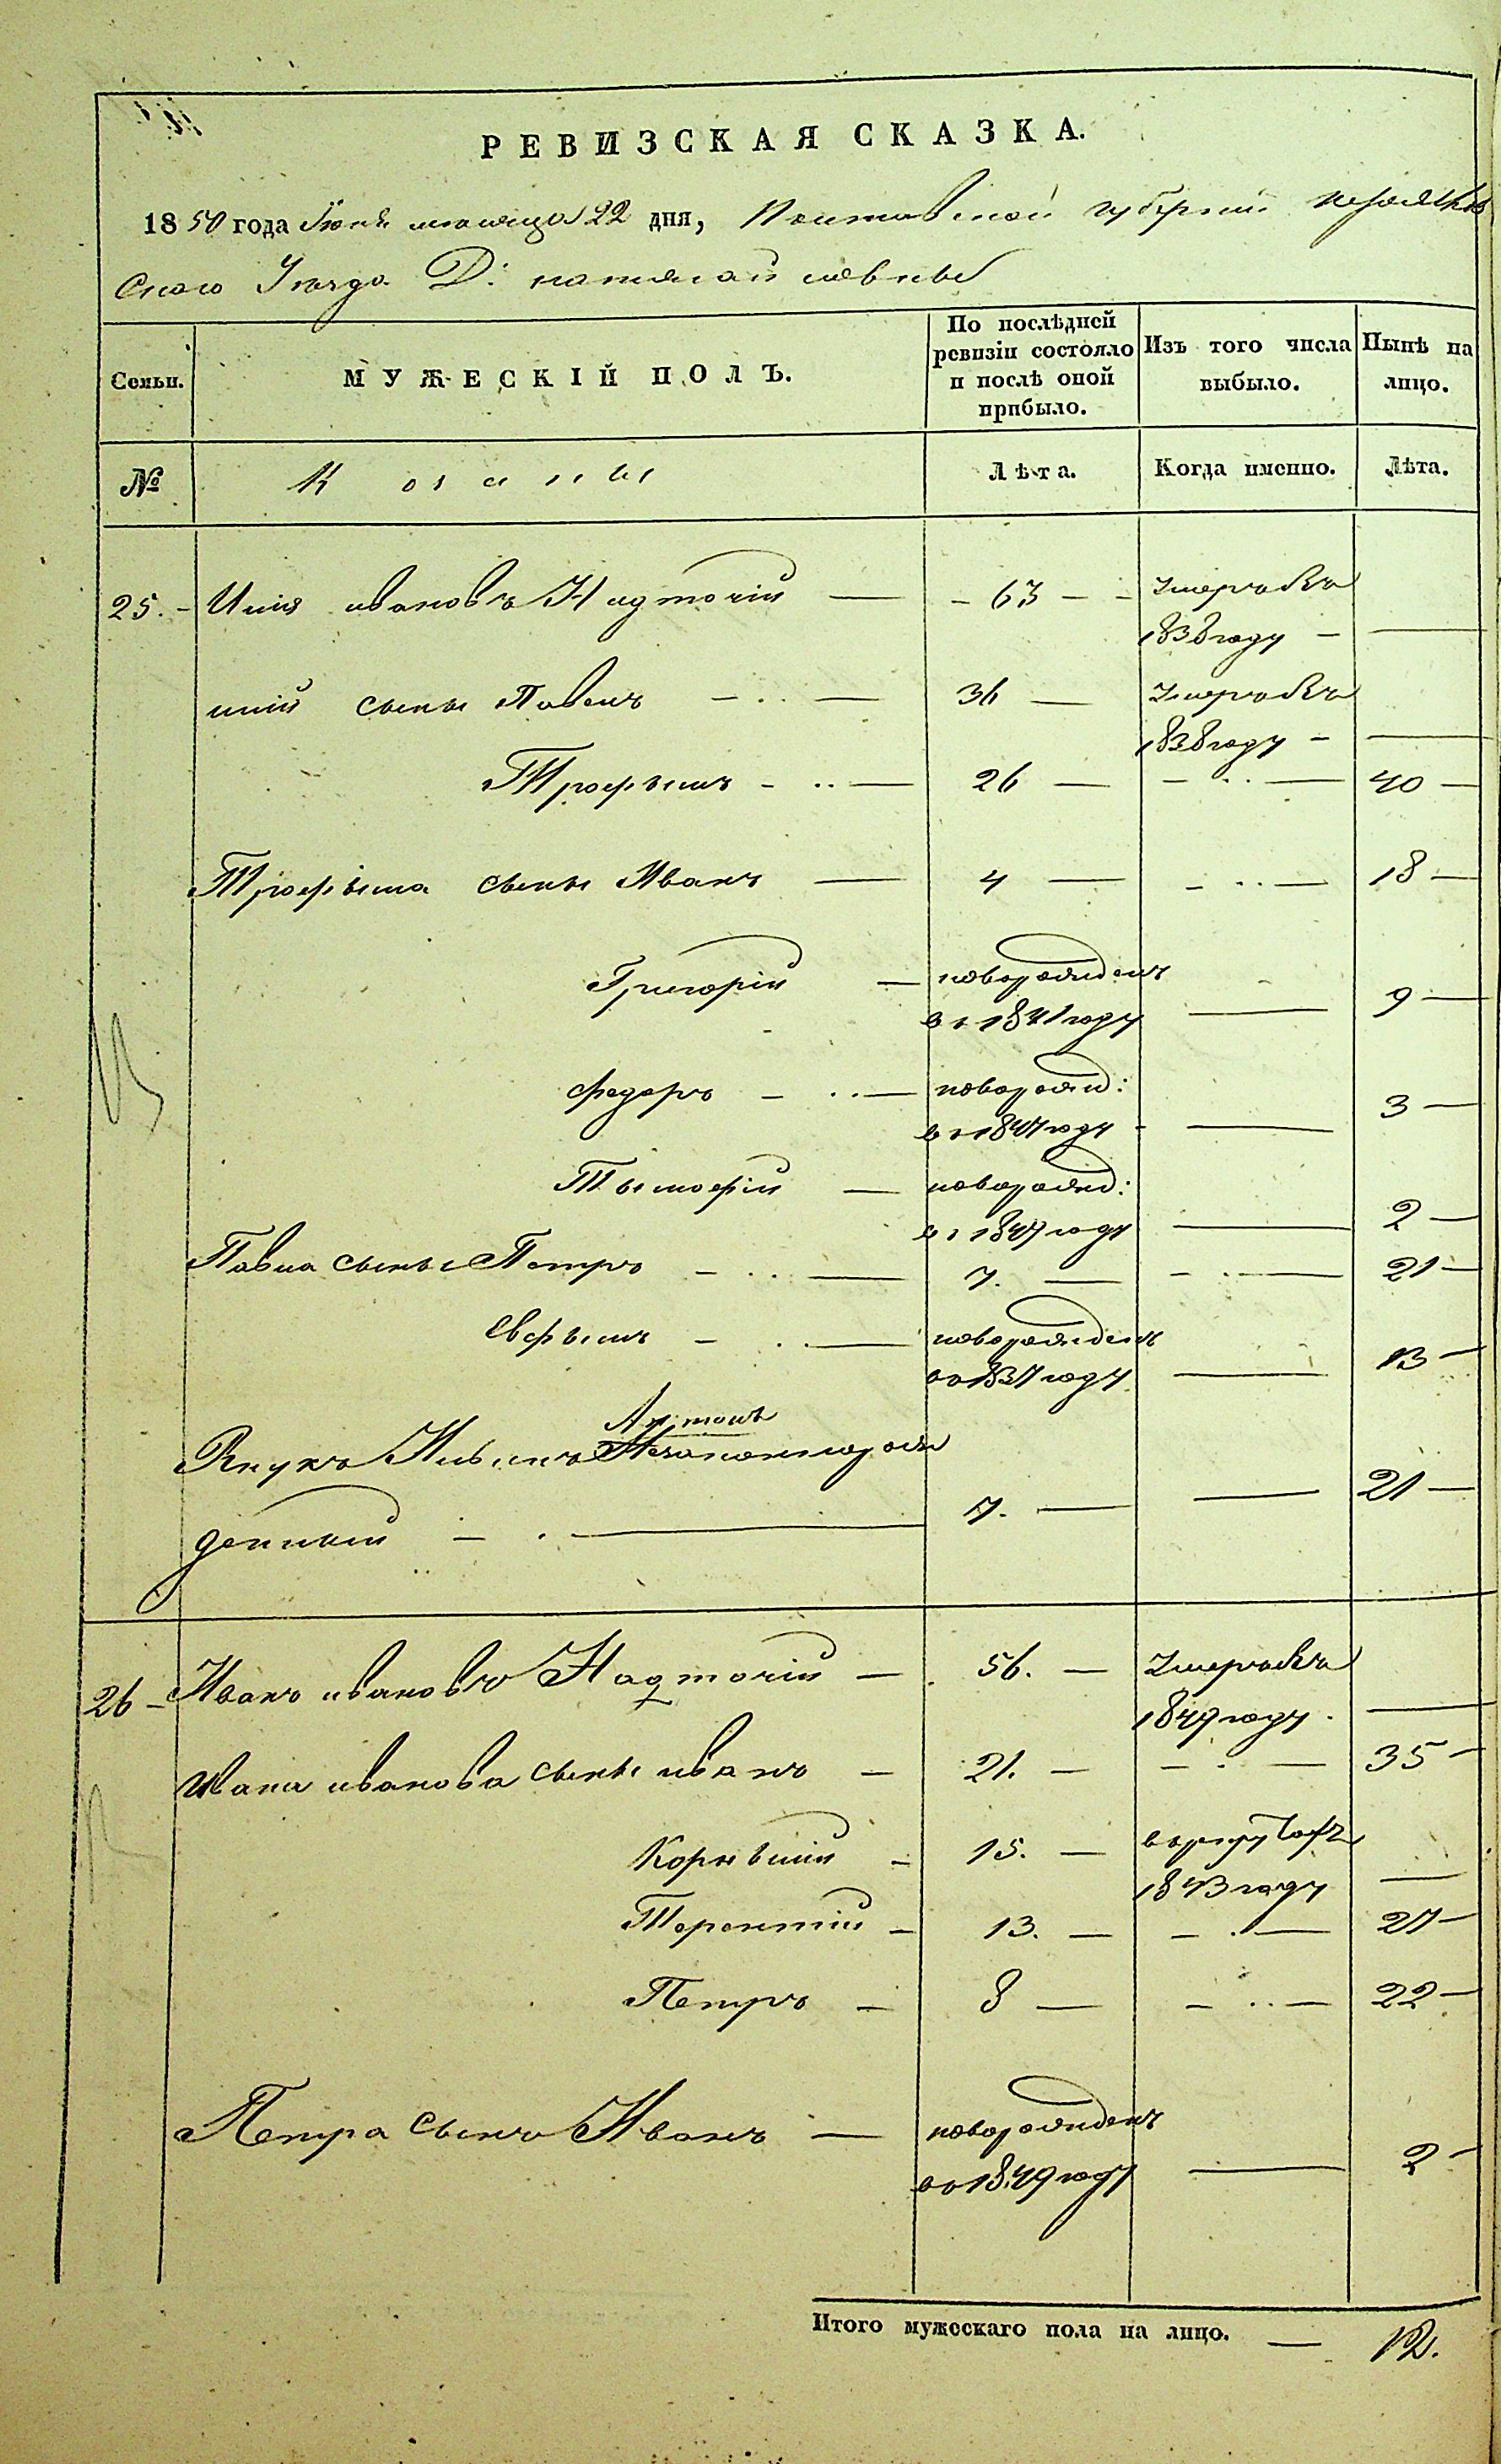 РЕВИЗСКАЯ СКАЗКА.
1850 года Іюня месяца 22 дня, Полтавской губерніи
ского Уезда Д:
Семьи. МУЖЕСКІЙ ПОЛЪ. По послѣдней ревизіи состояло и послѣ оной прибыло. Изъ того числа выбыло. Нынѣ на лицо.
№ Козаки Лѣта. Когда именно. Лѣта.
25. Илія ивановъ Надточій 63 Умеръ въ
1838 году
иліи сыны Павелъ 36 Умеръ въ
1838 году
Трофымъ 26 40
Трофыма сыны Иванъ 4 18
Григорій новорожденъ
въ 1841 году 9
Федоръ новорожд:
въ 1847 году 3
Тымофій новорожд:
въ 1847 году 2
Павла сыны Петръ 7. 21
Евфымъ новорожденъ
въ 1837 году 13
Внукъ Незаконнорож
денный 7. 21
26 Иванъ ивановъ Надточій 56. Умеръ въ
1849 году
Ивана иванова сыны иванъ 21. 35
Корнылій 15. врекруты
1843 году
Терентій 13. 27
Петръ 8 22
Петра сынъ Иванъ новорожденъ
въ 1849 году 2
Итого мужескаго пола на лицо. 12.